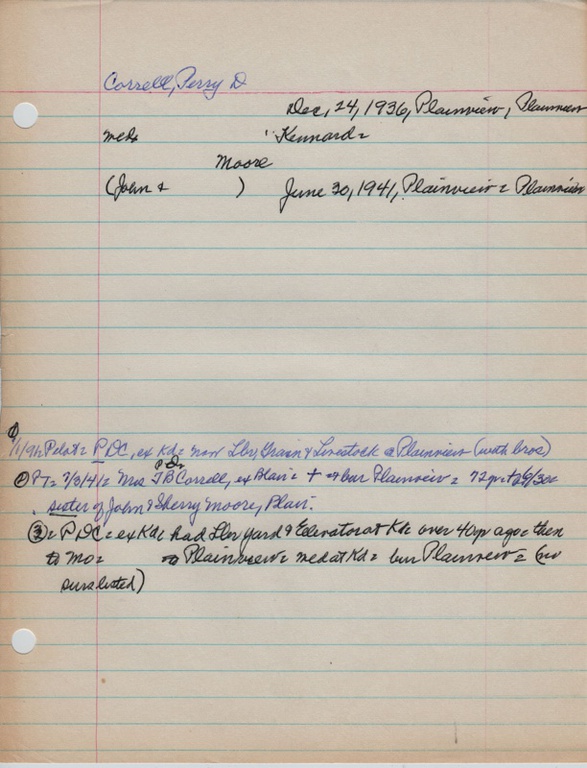 Correll, Perry D
Dec, 24, 1936, Plainview, Plainview
med= Kennard=
Moore
(John & ) June 30, 1941, Plainview = Plainview
① 1/1/ Pilot= PDC, ex Kd= now Lbr, Grain & Livestock @ Plainview (with bros)
② PT= 7/3/41= Mrs TB Correll, ex Blair= + & bur Plainview = 72yr=
P D=
sister of John & Sherry Moore, Blair.
③= PDC= ex Kd= had Lbr yard & Elevator at Kd= over 40yr ago= then
to Mo= Plainview= med at Kd= bur Plainview= (no
survs listed)